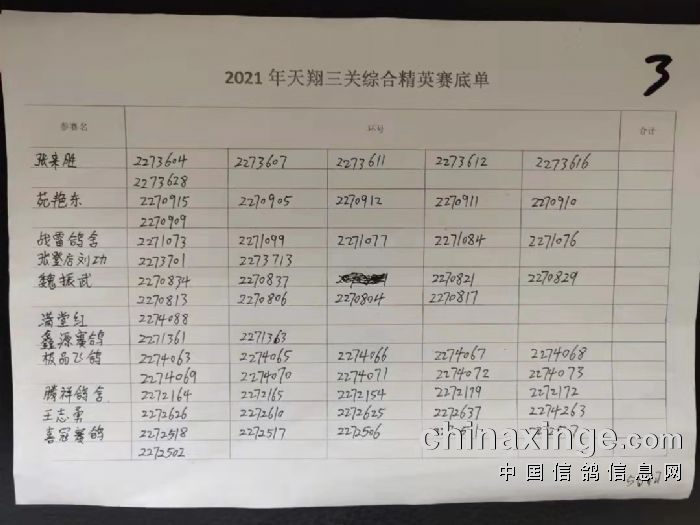 2021 年天翔三关综合精英赛底单
3
参赛名 环号 合计
张来胜 2273604 2273607 2273611 2273612 2273616
2273628
苑艳东 2270915 2270905 2270912 2270911 2270910
2270909
战雷鸽舍 2271073 2271099 2271077 2271084 2271076
张登启刘功 2273701 2273713
魏振武 2270834 2270837 2270821 2270829
2270813 2270806 2270804 2270817
满堂红 2274088
鑫源赛鸽 2271361 2271363
极品飞鸽 2274063 2274065 2274066 2274067 2274068
2274069 2274070 2274071 2274072 2274073
腾祥鸽舍 2272164 2272165 2272154 2272179 2272172
王志勇 2272626 2272610 2272625 2272637 2274263
喜冠赛鸽 2272518 2272517 2272506
2272502
chinaxinge.com
中国信鸽信息网